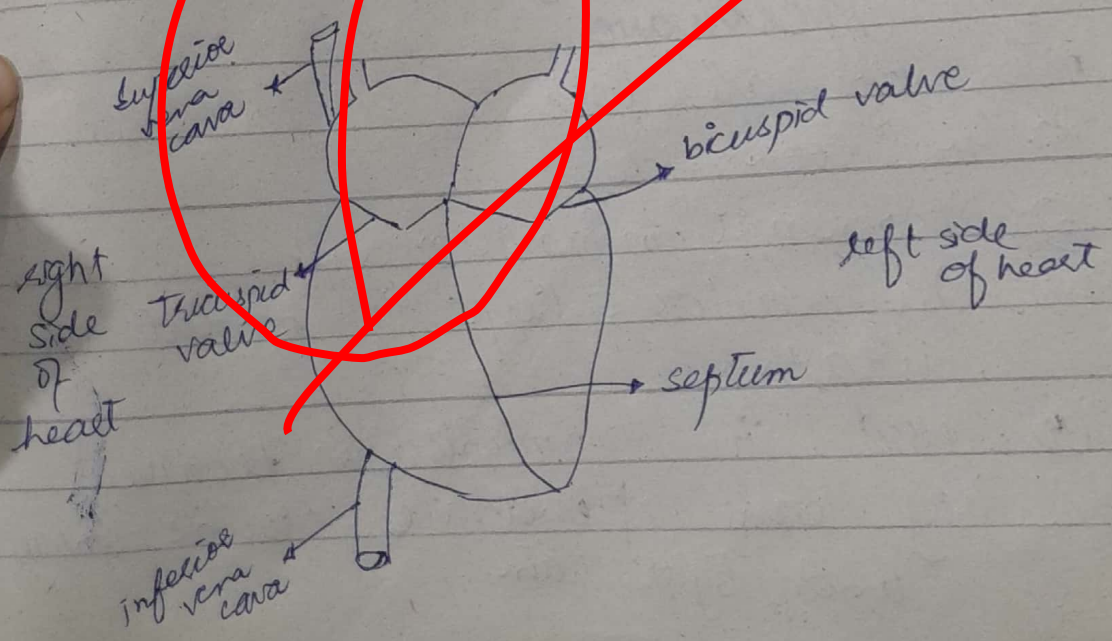 superior
vena
cava
bicuspid valve
left side
of heart
right
side
of
heart
Tricuspid
valve
septum
inferior
vena
cava